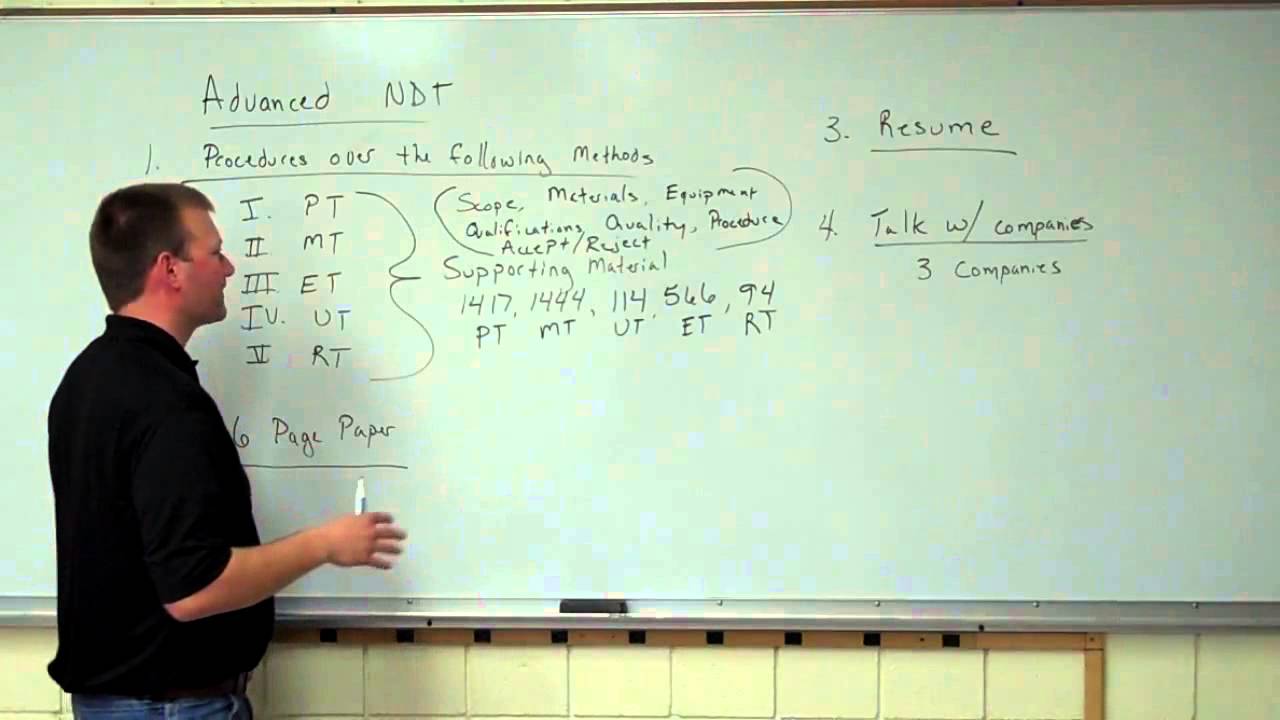 Advanced NDT
1. Procedures over the following Methods
I. PT
II MT
III ET
IV. UT
V RT
Scope, Materials, Equipment
Qualifications, Quality, Procedure
Accept/Reject
Supporting Material
1417, 1444, 114, 566, 94
PT MT UT ET RT
6 Page Paper
3. Resume
4. Talk w/ companies
3 Companies